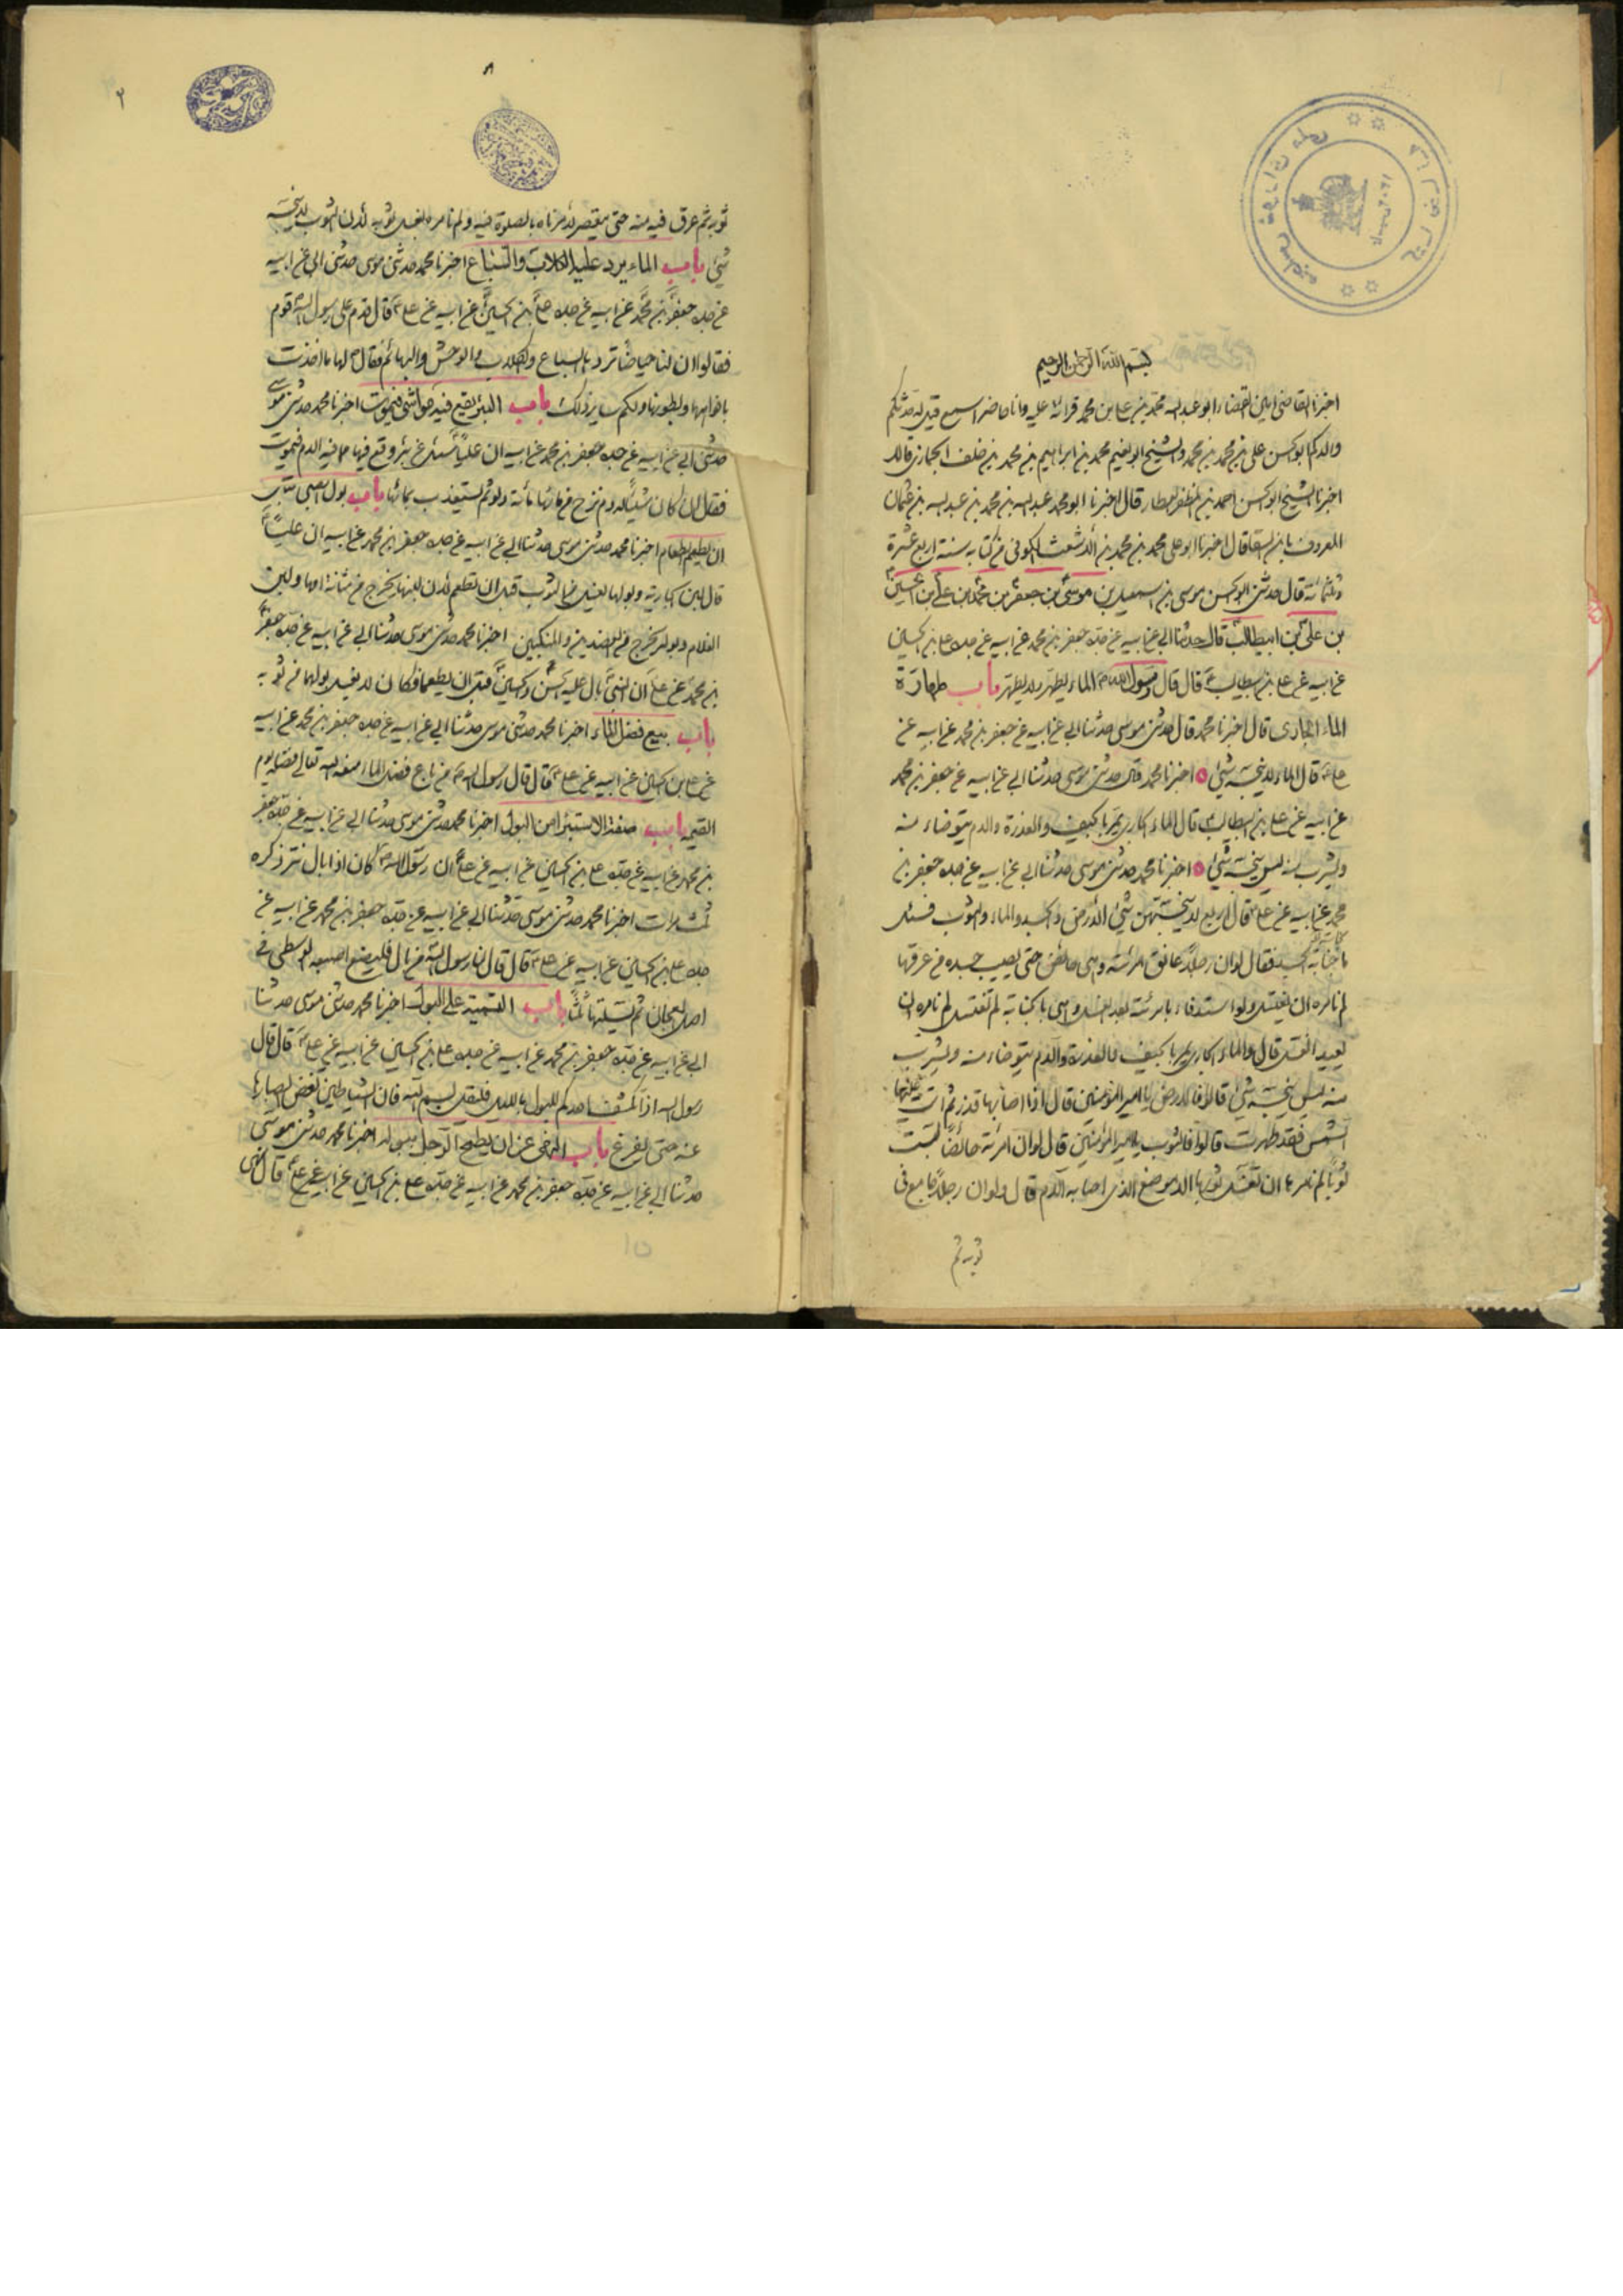 بسم الله الرحمن الرحيم
اخبرنا القاضى امين القضاء ابو عبد الله محمد بن على بن محمد قرائة عليه وانا حاضر اسمع قيل له حدثكم
والدكم ابو الحسن على بن محمد بن محمد والشيخ ابو نعيم محمد بن ابراهيم بن محمد بن خلف الجمازى قالا
اخبرنا الشيخ ابو الحسن احمد بن المظفر العطار قال اخبرنا ابو محمد عبد الله بن محمد بن عبد الله بن عثمان
المعروف بابن السقا قال اخبرنا ابو على محمد بن محمد بن الاشعث الكوفى من كتابه سنة اربع عشرة
وثلثمائة قال حدثنى ابو الحسن موسى بن اسمعيل بن موسى بن جعفر بن محمد بن على بن الحسين
بن على بن ابيطالب قال حدثنا ابى عن ابيه عن جده جعفر بن محمد عن ابيه عن جده على بن الحسين
عن ابيه عن على بن ابيطالب قال قال رسول الله الماء يطهر ولا يطهر باب طهارة
الماء الجارى قال اخبرنا محمد قال حدثنى موسى حدثنا ابى عن ابيه عن جعفر بن محمد عن ابيه عن
على قال الماء لا ينجسه شئ اخبرنا محمد قال حدثنى موسى حدثنا ابى عن ابيه عن جعفر بن محمد
عن ابيه عن على بن ابيطالب قال الماء الجارى يمر بالجيف والعذرة والدم يتوضاء منه
ويشرب منه ليس ينجسه شئ اخبرنا محمد حدثنى موسى حدثنا ابى عن ابيه عن جده جعفر بن
محمد عن ابيه عن على قال اربع لا ينجسهن شئ الارض والجسد والماء والثوب فسئل
الجسد فقال لو ان رجلا عانق امرئته وهى حائض حتى يصيب جسده من عرقها
لم نامره ان يغتسل ولو استدفاء بامرئته بعد الغسل وهى بالجنابة لم تغتسل لم نامره ان
يعيد الغسل قال والماء الجارى يمر بالجيف والعذرة والدم يتوضاء منه ويشرب
منه ليس ينجسه شئ قالوا فالارض يا امير المؤمنين قال اذا اصابها قذر ثم اتت عليها
الشمس فقد طهرت قالوا فالثوب يا امير المؤمنين قال لو ان امرئة حائضا لبست
ثوبا لم نامرها ان تغسل ثوبها الا الموضع الذى اصابه الدم قال ولو ان رجلا جامع فى
ثوبه ثم
٢
ثوبه ثم عرق فيه منه حتى يعتصر لامرناه بالصلوة فيه ولم نامره بغسل ثوبه لان الثوب لا ينجسه
شئ باب الماء يرد عليه الكلاب والسباع اخبرنا محمد حدثنى موسى حدثنى ابى عن ابيه
عن جده جعفر بن محمد عن ابيه عن جده على بن الحسين عن ابيه عن على قال قدم على رسول الله قوم
فقالوا ان لنا حياضا تردها السباع والكلاب والوحش والبهائم فقال لها ما اخذت
بافواهها وبطونها ولكم سائر ذلك باب البئر يقع فيه مواشى فيموت اخبرنا محمد حدثنى موسى
حدثنى ابى عن ابيه عن جده جعفر بن محمد عن ابيه ان عليا سئل عن بئر وقع فيها ما فيه الدم فيموت
فقال ان كان شيئا له دم نزح من مائها مائة دلو ثم يستعذب بمائها باب بول الصبى قبل
ان يطعم الطعام اخبرنا محمد حدثنى موسى حدثنا ابى عن ابيه عن جده جعفر بن محمد عن ابيه ان عليا
قال لبن الجارية وبولها يغسل من الثوب قبل ان تطعم لان لبنها يخرج من مثانة امها ولبن
الغلام وبوله يخرج من العضدين والمنكبين اخبرنا محمد حدثنى موسى حدثنا ابى عن ابيه عن جده جعفر
بن محمد عن على ان النبى بال عليه الحسن والحسين قبل ان يطعما فكان لا يغسل بولهما من ثوبه
باب بيع فضل الماء اخبرنا محمد حدثنى موسى حدثنا ابى عن ابيه عن جده جعفر بن محمد عن ابيه
عن على بن الحسين عن ابيه عن على قال قال رسول الله من باع فضل الماء منعه الله تعالى فضله يوم
القيمه باب صفة الاستبراء من البول اخبرنا محمد حدثنى موسى حدثنا ابى عن ابيه عن جده جعفر
بن محمد عن ابيه عن جده على بن الحسين عن ابيه عن على ان رسول الله كان اذا بال نتر ذكره
ثلث مرات اخبرنا محمد حدثنى موسى حدثنا ابى عن ابيه عن جده جعفر بن محمد عن ابيه عن
جده على بن الحسين عن ابيه عن على قال قال لنا رسول الله من بال فليضع اصبعه الوسطى فى
اصل العجان ثم يسلتها ثلثا باب التسمية على البول اخبرنا محمد حدثنى موسى حدثنا
ابى عن ابيه عن جده جعفر بن محمد عن ابيه عن جده على بن الحسين عن ابيه عن على قال قال
رسول الله اذا انكشف احدكم للبول بالليل فليقل بسم الله فان الشياطين تغض ابصارها
عنه حتى يفرغ باب النهى عن ان يطمح الرجل ببوله اخبرنا محمد حدثنى موسى
حدثنا ابى عن ابيه عن جده جعفر بن محمد عن ابيه عن جده على بن الحسين عن ابيه عن على قال نهى